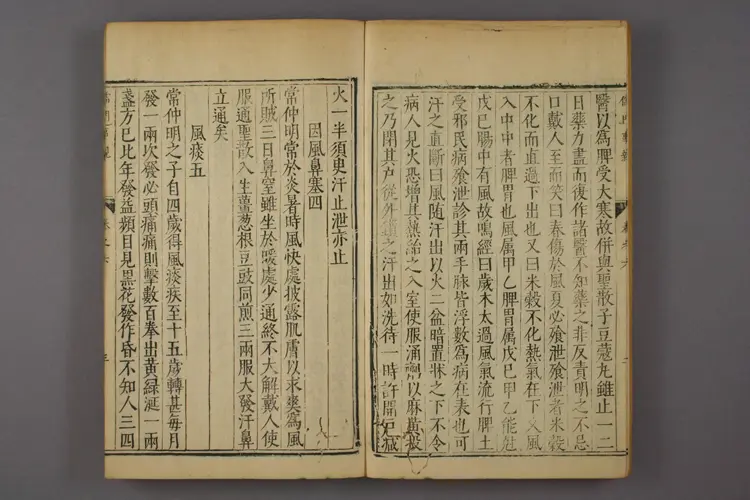 醫以為脾受大寒故併與聖散子豆蔻丸雖止一二
日藥力盡而復作諸醫不知藥之非反責明之不忌
口戴人至而笑曰春傷於風夏必飧泄飧泄者米穀
不化而直過下出也又曰米穀不化熱氣在下久風
入中中者脾胃也風属甲乙脾胃属戊巳甲乙能尅
戊巳腸中有風故鳴經曰歲木太過風氣流行脾土
受邪民病飧泄診其兩手脉皆浮數為病在表也可
汗之直斷曰風随汗出以火二盆暗置牀之下不令
病人見火恐增其熱紿之入室使服涌劑以麻黃投
之乃閉其戶從外鎖之汗出如洗待一時許開戶減
火一半須臾汗止泄亦止
因風鼻塞四
常仲明常於炎暑時風快處披露肌膚以求爽為風
所賊三日鼻窒雖坐於暖處少通終不大解戴人使
服通聖散入生薑葱根豆豉同煎三兩服大發汗鼻
立通矣
風痰五
常仲明之子自四歲得風痰疾至十五歲轉甚每月
發一兩次發必頭痛痛則擊數百拳出黃綠涎一兩
盞方已比年發益頻目見黑花發作昏不知人三四